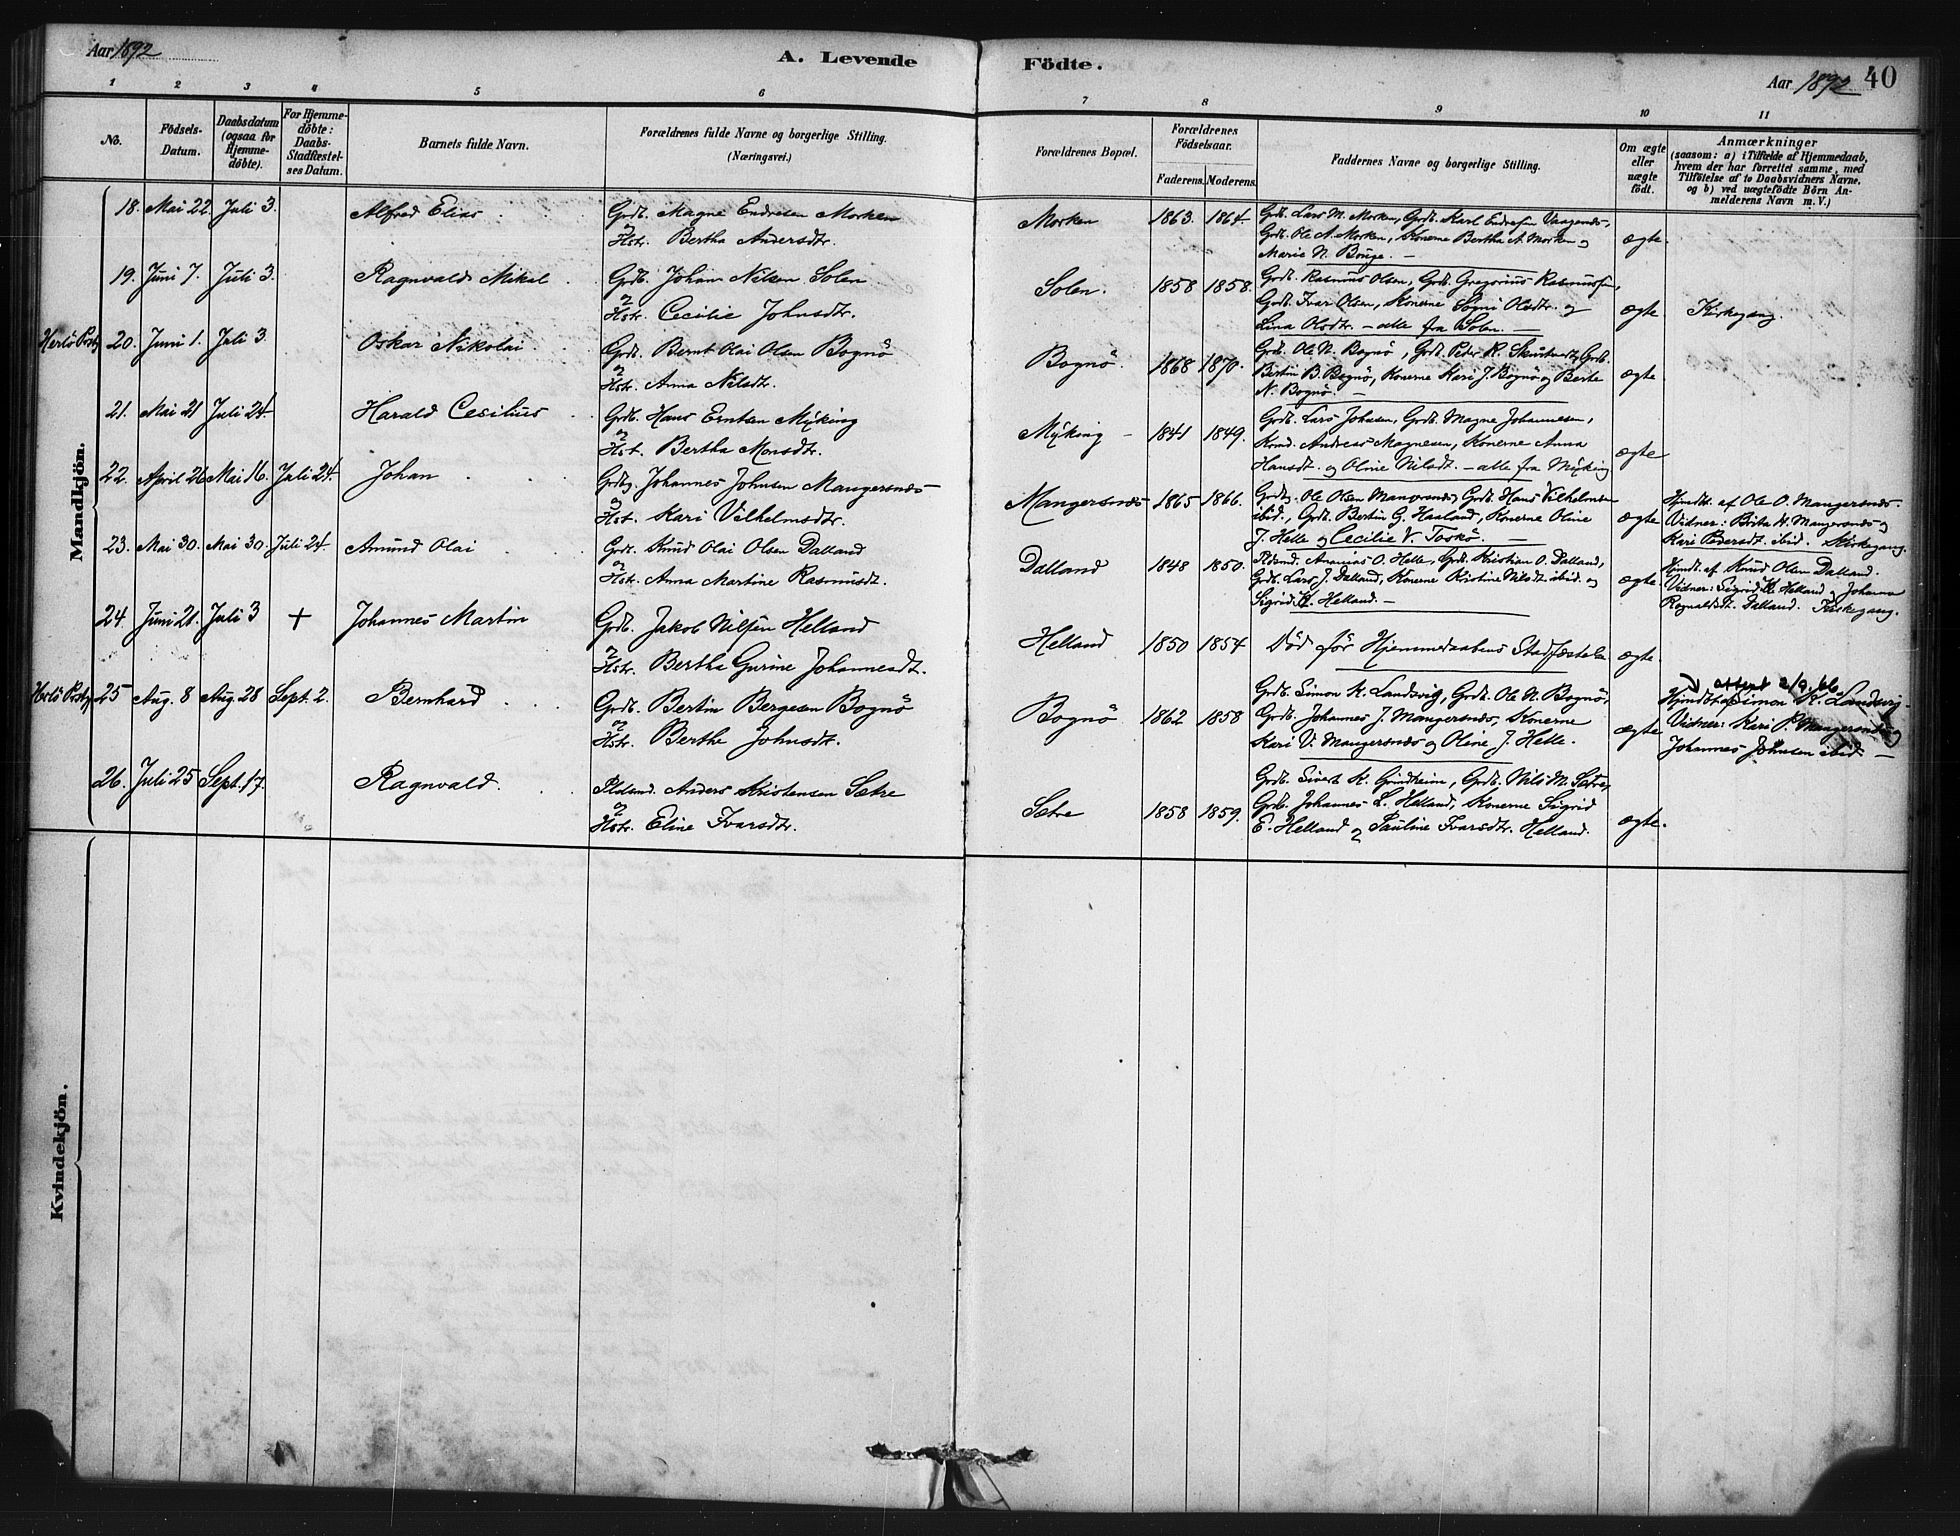 Aar 1892
A. Levende Födte.
Aar 1892 40
1 2 3 4 5 6 7 8 9 10 11
No.
Födsels-Datum.
Daabsdatum (ogsaa for Hjemme-döbte).
For Hjemme-döbte: Daabs-Stadfæstel-ses Datum.
Barnets fulde Navn.
Forældrenes fulde Navne og borgerlige Stilling.
(Næringsvei.)
Forældrenes Bopæl.
Forældrenes Födselsaar.
Faderens. Moderens.
Faddernes Navne og borgerlige Stilling.
Om ægte eller uægte födt.
Anmærkninger
(saasom: a) i Tilfælde af Hjemmedaab,
hvem der har forrettet samme, med
Tilföielse af to Daabsvidners Navne,
og b) ved uægtefödte Börn An-
melderens Navn m. V.)
Mandkjön.
18. Mai 22. Juli 3. Alfred Elias Grdb. Magne Endresen Morken
og Hstr. Bertha Andersdtr.
Morken 1863. 1864. Grdb. Lars M. Morken, Grdb. Karl Endresen Vaagenes,
Grdb. Ole A. Morken, Konerne Bertha A. Morken og
Marie N. Bouge. —
ægte.
19. Juni 7. Juli 3. Ragnvald Mikal Grdb. Johan Nilsen Solen
og Hstr. Cecilie Johnsdtr.
Solen. 1858 1858. Grdb. Rasmus Olsen, Grdb. Gregorius Rasmussen,
Grdb. Ivar Olsen, Konerne Sogni Olsdtr. og
Lina Olsdtr. — alle fra Solen. —
ægte Kirkegang.
Herlö Prstg. 20. Juni 1. Juli 3. Oskar Nikolai Grdb. Bernt Olai Olsen Bognö
og Hstr. Anna Nilsdtr.
Bognö. 1868 1870. Grdb. Ole N. Bognö, Grdb. Peter R. Grdb.
Bertin B. Bognö, Konerne Kari J. Bognö og Berte
N. Bognö. —
ægte
21. Mai 21 Juli 24. Harald Cesilius Grdb. Hans Erntsen Myking
og Hst. Bertha Monsdtr.
Myking — 1841 1849. Grdb. Lars Johnsen, Grdb. Magne Johannesen,
Andreas Magnesen, Konerne Anna
Hansdt. og Oline Nilsdt. — alle fra Myking
ægte
22. April 26 Mai 16. Juli 24. Johan Grdbg. Johannes Johnsen Mangersnes
og Hst. Kari Vilhelmsdtr.
Mangersnes 1865 1866. Grdbg. Ole Olsen Mangersnes, Grdb. Hans Vilhelmsen
ibid., Grdb. Bertin G. Hauland, Konerne Oline
J. Helle og Cecilie V. Toskö. —
ægte Hjmdt. af Ole O. Mangersnes.
Vidner: Brita H. Mangersnes og
Kari Pedersdt. ibid. Kirkegang.
23. Mai 30. Mai 30. Juli 24. Amund Olai Grdb. Knud Olai Olsen Dalland
og Hst. Anna Martine Rasmusdt.
Dalland 1848 1850. Pldsmd. Ananias O. Helle, Grdb. Kristian O. Dalland,
Grdb. Lars J. Dalland, Konerne Kristine Nilsdt. ibid. og
Sigrid K. Helland. —
ægte. Hjmdt. af Knud Olsen Dalland.
Vidner: Sigrid K. Helland og Johanna
Dalland. Kirkegang.
24. Juni 21. Juli 3 + Johannes Martin Grdb. Jakob Nilsen Helland
og Hstr. Bertha Gurine Johannesdt.
Helland 1850 1854 Död för Hjemmedaabens Stadfæstelse
ægte.
Herlö Prstg. 25 Aug. 8 Aug. 28 Sept. 2. Bernhard Grdb. Bertin Bergesen Bognö
og Hstr. Berthe Johnsdt.
Bognö 1862 1858 Grdb. Simon K. Landsvig, Grdb. Ole N. Bognö,
Grdb. Johannes J. Mangersnes, Konerne
Kari V. Mangersnes og Oline J. Helle.
ægte attest 2/9.66
Hjmdt. af Simon K. Landsvig.
Vidner: Kari P. Mangersnes og
Johannes Johnsen ibid. —
26. Juli 25 Sept. 17. Ragnvald. Pldsmd. Anders Kristensen Sætre
og Hstr. Eline Ivarsdtr.
Sætre 1858 1859. Grdb. Sivert K. Grindheim, Grdb. Nils M. Sætre,
Grdb. Johannes L. Helland, Konerne Sigrid
E. Helland og Pauline Ivarsdtr. Helland.
ægte.
Kvindekjön.